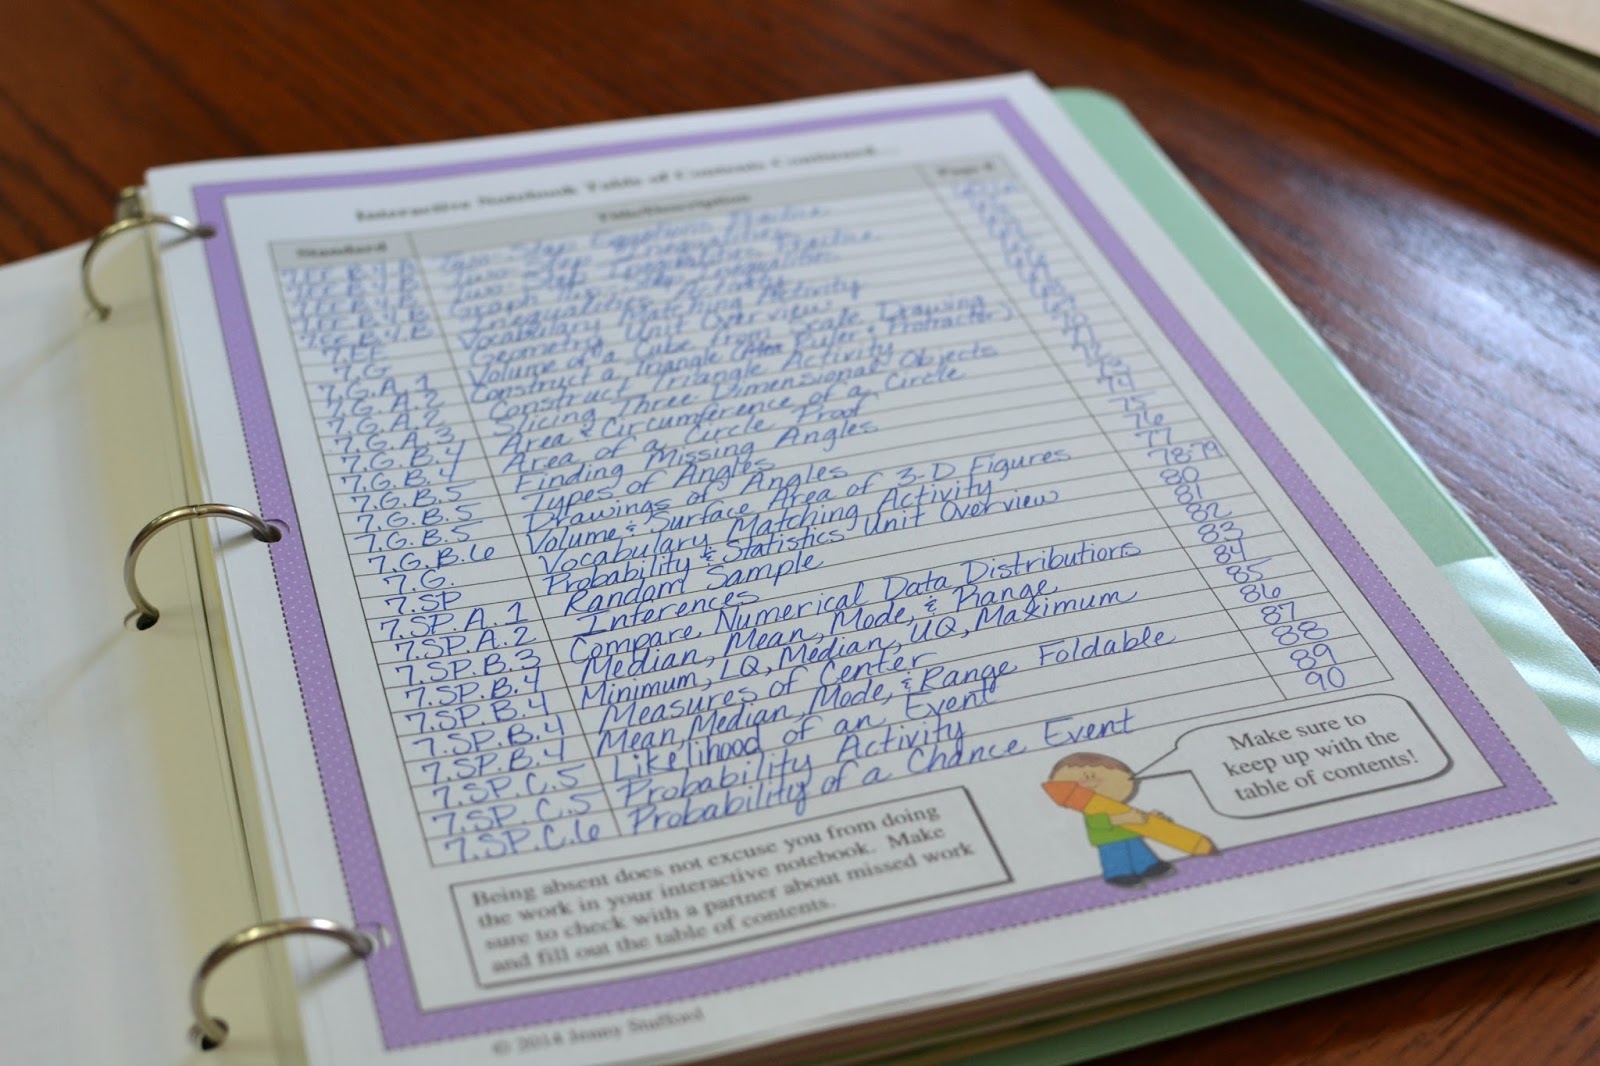 Interactive Notebook Table of Contents Continued...
Standard Title/Description Page #
7.EE.B.4.B Two-Step Equations Practice
7.EE.B.4.B Two-Step Inequalities
7.EE.B.4.B Two-Step Inequalities Practice
7.EE.B.4.B Graph Two-Step Inequalities
7.EE.B.4.B Inequalities Activity
7.EE Vocabulary Matching Activity
7.G Geometry Unit Overview
7.G.A.1 Volume of a Cube from Scale Drawing
7.G.A.2 Construct a Triangle Ruler & Protractor)
7.G.A.2 Construct Triangle Activity
7.G.A.3 Slicing Three-Dimensional Objects
7.G.B.4 Area & Circumference of a Circle
7.G.B.4 Area of a Circle Proof
7.G.B.5 Finding Missing Angles 74
7.G.B.5 Types of Angles 75
7.G.B.5 Drawings of Angles 76
7.G.B.6 Volume & Surface Area of 3-D Figures 77
7.G. Vocabulary Matching Activity 78-79
7.SP Probability & Statistics Unit Overview 80
7.SP.A.1 Random Sample 81
7.SP.A.2 Inferences 82
7.SP.B.3 Compare Numerical Data Distributions 83
7.SP.B.4 Median, Mean, Mode, & Range 84
7.SP.B.4 Minimum, LQ, Median, UQ, Maximum 85
7.SP.B.4 Measures of Center 86
7.SP.B.4 Mean, Median, Mode, & Range Foldable 87
7.SP.C.5 Likelihood of an Event 88
7.SP.C.5 Probability Activity 89
7.SP.C.6 Probability of a Chance Event 90
Make sure to
keep up with the
table of contents!
Being absent does not excuse you from doing
the work in your interactive notebook. Make
sure to check with a partner about missed work
and fill out the table of contents.
© 2014 Jenny Stafford